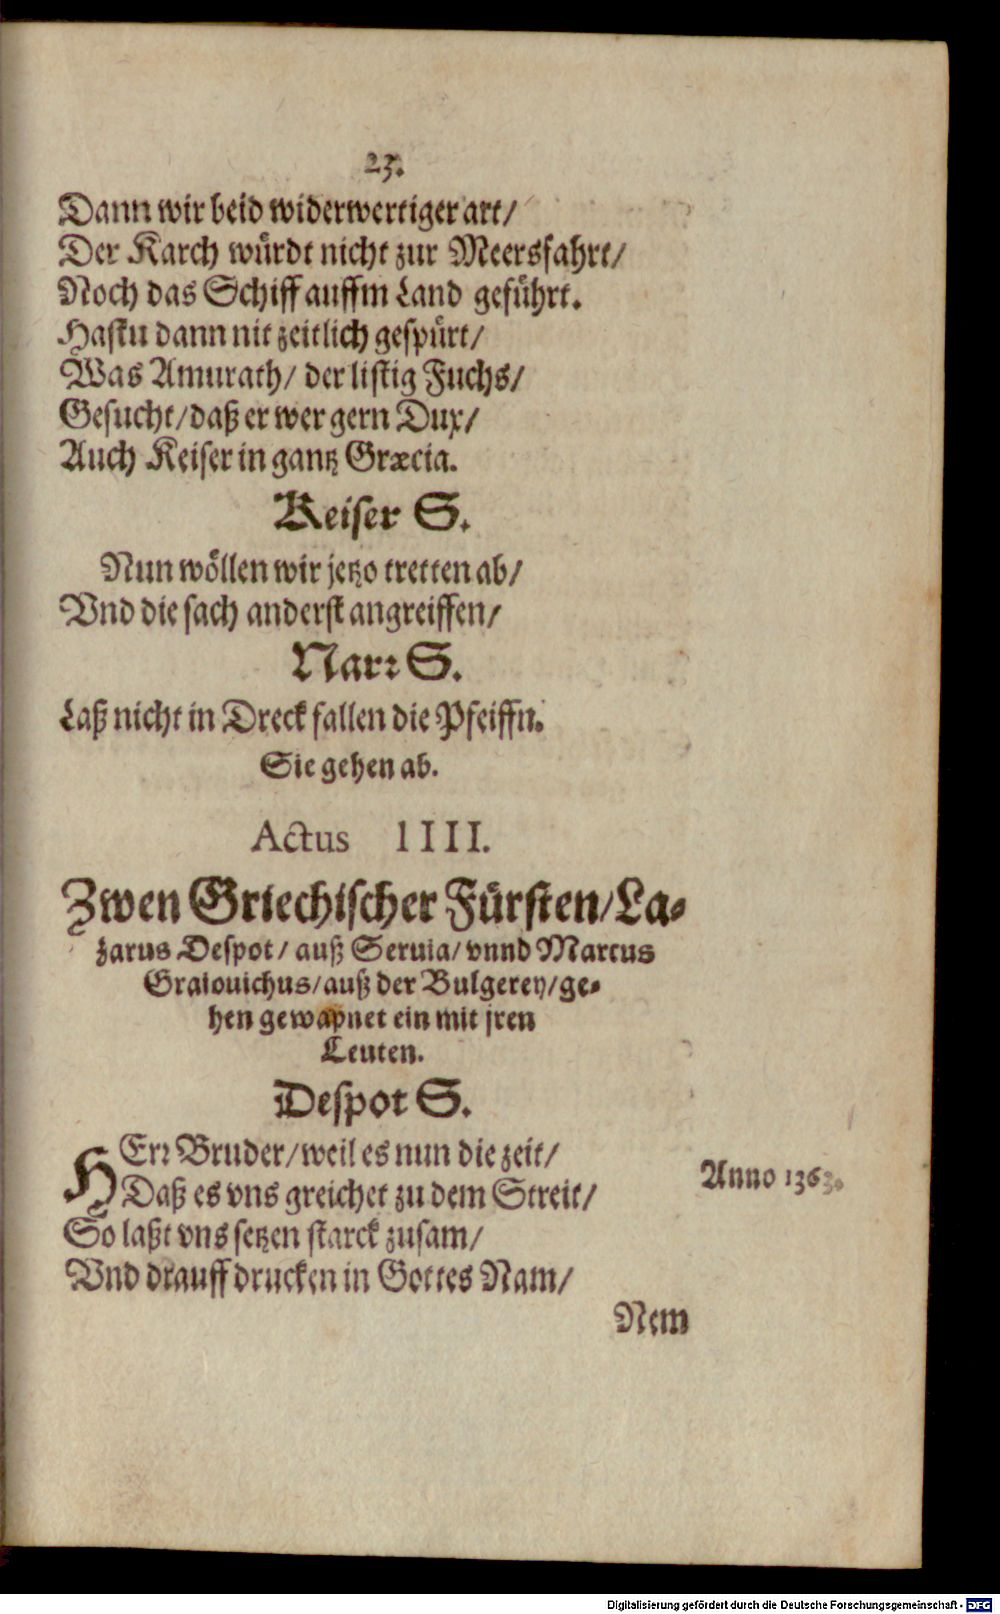 23.
Dann wir beid widerwertiger art/
Der Karch würdt nicht zur Meersfahrt/
Noch das Schiff auffm Land geführt.
Hastu dann nit zeitlich gespürt/
Was Amurath/ der listig Fuchs/
Gesucht/ daß er wer gern Dux/
Auch Keiser in gantz Græcia.
Keiser S.
Nun wöllen wir jetzo tretten ab/
Vnd die sach anderst angreiffen/
Narr S.
Laß nicht in Dreck fallen die Pfeiffn.
Sie gehen ab.
Actus IIII.
Zwen Griechischer Fürsten/ La-
zarus Despot/ auß Seruia/ vnnd Marcus
Graiouichus/ auß der Bulgerey/ ge-
hen gewapnet ein mit jren
Leuten.
Despot S.
HErr Bruder/ weil es nun die zeit/
Daß es vns greichet zu dem Streit/
Anno 1363.
So laßt vns setzen starck zusam/
Vnd drauff drucken in Gottes Nam/
Nem
Digitalisierung gefördert durch die Deutsche Forschungsgemeinschaft - DFG